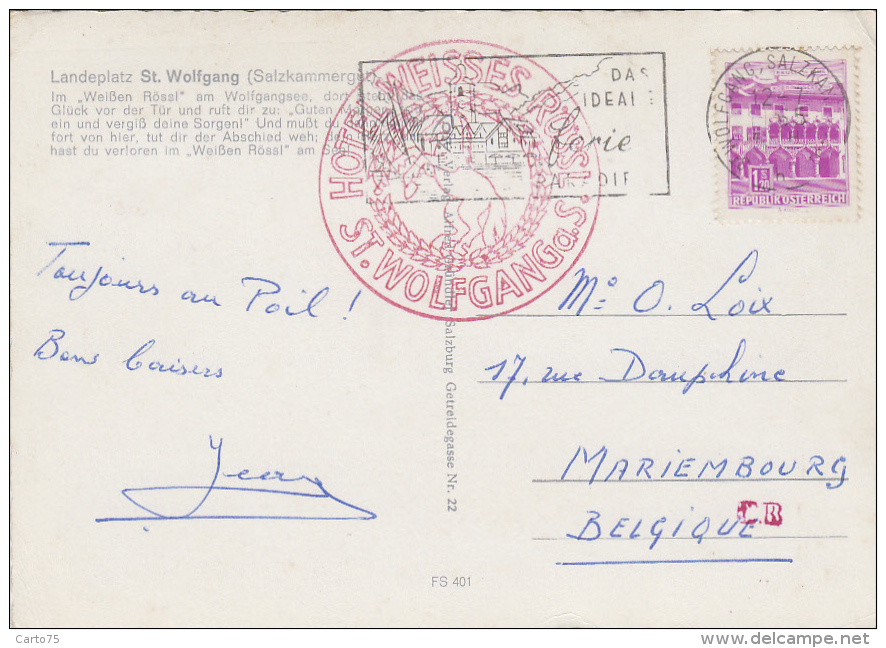 Landeplatz St. Wolfgang (Salzkammergut)
Im „Weißen Rössl" am Wolfgangsee, dort steht das
Glück vor der Tür und ruft dir zu: „Guten
ein und vergiß deine Sorgen!" Und mußt d
fort von hier, tut dir der Abschied weh;
hast du verloren im „Weißen Rössl" am See!
HOTEL WEISSES RÖSSL
ST. WOLFGANG a. S.
DAS
IDEALE
ferien
PARADIES
WOLFGANG, SALZKA
12.-7.
1.20
S
REPUBLIK ÖSTERREICH
Toujours au Poil !
Bons baisers
Jean
Verlag Alfred Gründler, Salzburg Getreidegasse Nr. 22
Me O. Loix
17, rue Dauphine
MARIEMBOURG
BELGIQUE
C.B
FS 401
Carto75
www.delcampe.net